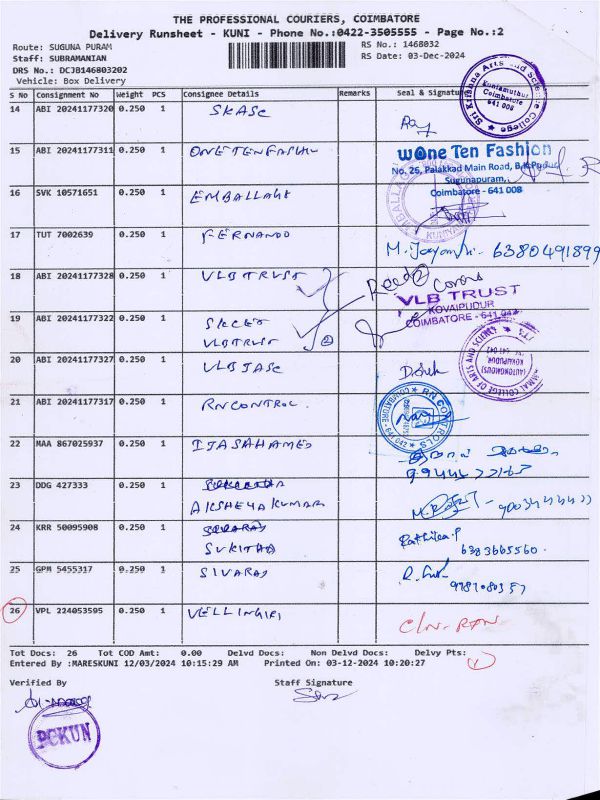 THE PROFESSIONAL COURIERS, COIMBATORE
Delivery Runsheet - KUNI - Phone No.:0422-3505555 - Page No.:2
Route: SUGUNA PURAM
RS No.: 1468032
Staff: SUBRAMANIAN
RS Date: 03-Dec-2024
DRS No.: DCJB146803202
Vehicle: Box Delivery
S No Consignment No Weight PCS Consignee Details Remarks Seal & Signatu
14 ABI 20241177320 0.250 1 SKASC
Sri Krishna Arts and Science College
Kuniamuthur
Coimbatore
641 008
15 ABI 20241177311 0.250 1 ONE TEN FASHION
WOne Ten Fashion
No. 26, Palakkad Main Road, B.K.Pudur,
Sugunapuram,
Coimbatore - 641 008
16 SVK 10571651 0.250 1 EMBALLAGE
17 TUT 7002639 0.250 1 FERNANDO
M. Jayanthi - 6380491899
18 ABI 20241177328 0.250 1 VLB TRUST
Recd 2 Covers
VLB TRUST
KOVAIPUDUR
COIMBATORE - 641 042
19 ABI 20241177322 0.250 1 SKCET
VLB TRUST 2
20 ABI 20241177327 0.250 1 VLB JASC
COLLEGE OF ARTS AND
(AUTONOMOUS)
KOVAIPUDUR
641 042
21 ABI 20241177317 0.250 1 RN CONTROL
RN CONTROLS
COIMBATORE - 641 042
22 MAA 867025937 0.250 1 IJASAHAMED
23 DDG 427333 0.250 1
AKSHEYAKUMAR
24 KRR 50095908 0.250 1
SUKITHA
Rathika.P
6383665560
25 GPM 5455317 0.250 1 SIVARAJ
26 VPL 224053595 0.250 1 VELLINGIRI
Tot Docs: 26 Tot COD Amt: 0.00 Delvd Docs: Non Delvd Docs: Delvy Pts:
1
Entered By :MARESKUNI 12/03/2024 10:15:29 AM Printed On: 03-12-2024 10:20:27
Verified By Staff Signature
PCKUN